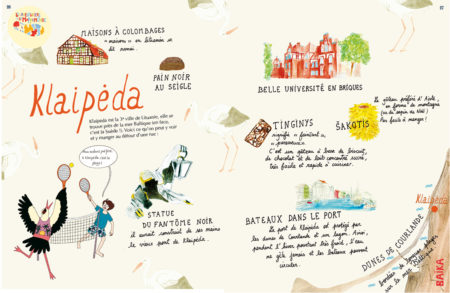 86
MAISONS À COLOMBAGES
« maison » en lituanien se
dit namai.
PAIN NOIR
AU SEIGLE
Klaipėda
Klaipėda est la 3e ville de Lituanie, elle se
trouve près de la mer Baltique (en face,
c'est la Suède !). Voici ce qu'on peut y voir
et y manger au détour d'une rue :
STATUE
DU FANTÔME NOIR
il aurait construit de ses mains
le vieux port de Klaipėda.
87
BELLE UNIVERSITÉ EN BRIQUES
TINGINYS
signifie « fainéant »,
« paresseux ».
C'est un gâteau à base de biscuit,
de chocolat et de lait concentré sucré,
très facile et rapide à cuisiner.
ŠAKOTIS
Le gâteau préféré d'Aistė,
en forme de montagne
Pas facile à manger !
BATEAUX DANS LE PORT
Le port de Klaipėda est protégé par
les dunes de Courlande et un lagon. Ainsi,
pendant l'hiver pourtant très froid, l'eau
ne gèle jamais et les bateaux peuvent
circuler.
Klaipėda
DUNES DE COURLANDE
BAÏKA